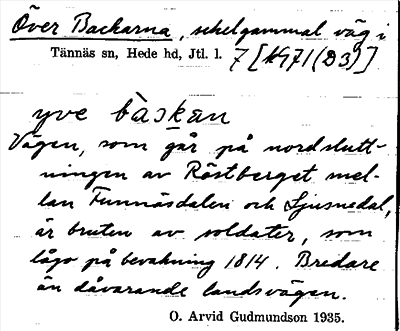 Över Backarna, sekelgammal väg i
Tännäs sn, Hede hd, Jtl. l. 7 [K971(D3)]
yve bàskan
Vägen, som går på nordslutt-
ningen av Röstberget mel-
lan Funnäsdalen och Ljusnedal,
är bruten av soldater, som
lågo på bevakning 1814. Bredare
än dåvarande landsvägen.
O. Arvid Gudmundson 1935.